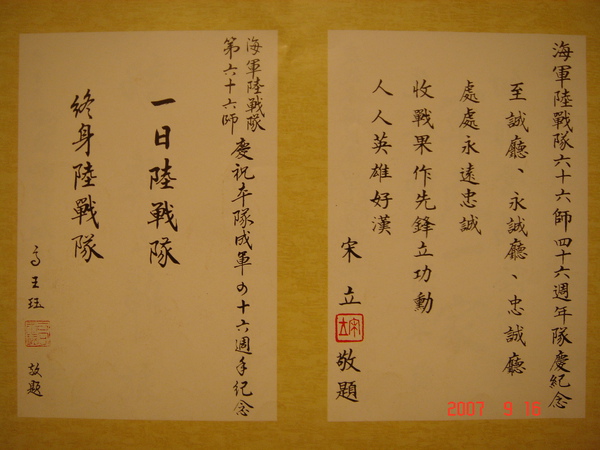 海軍陸戰隊六十六師四十六週年隊慶紀念
至誠廳、永誠廳、忠誠廳
處處永遠忠誠
收戰果作先鋒立功勳
人人英雄好漢
宋立
敬題
海軍陸戰隊
第六十六師
慶祝本隊成軍四十六週年紀念
一日陸戰隊
終身陸戰隊
王珏
敬題
2007 9 16